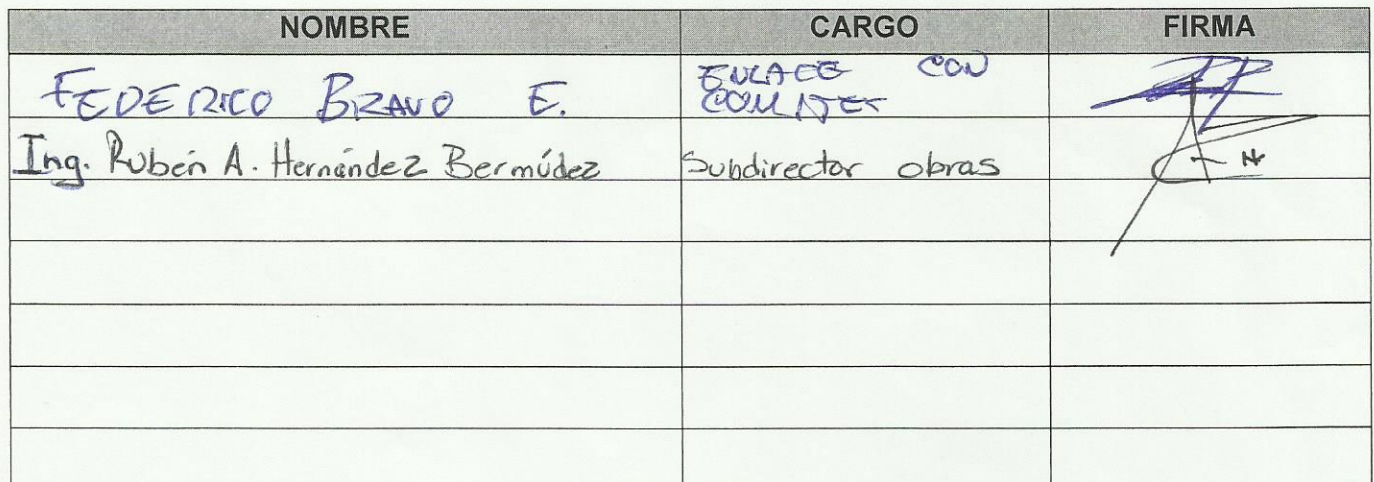 NOMBRE CARGO FIRMA
FEDERICO BRAVO E. ENLACE CON
Ing. Rubén A. Hernández Bermúdez Subdirector obras